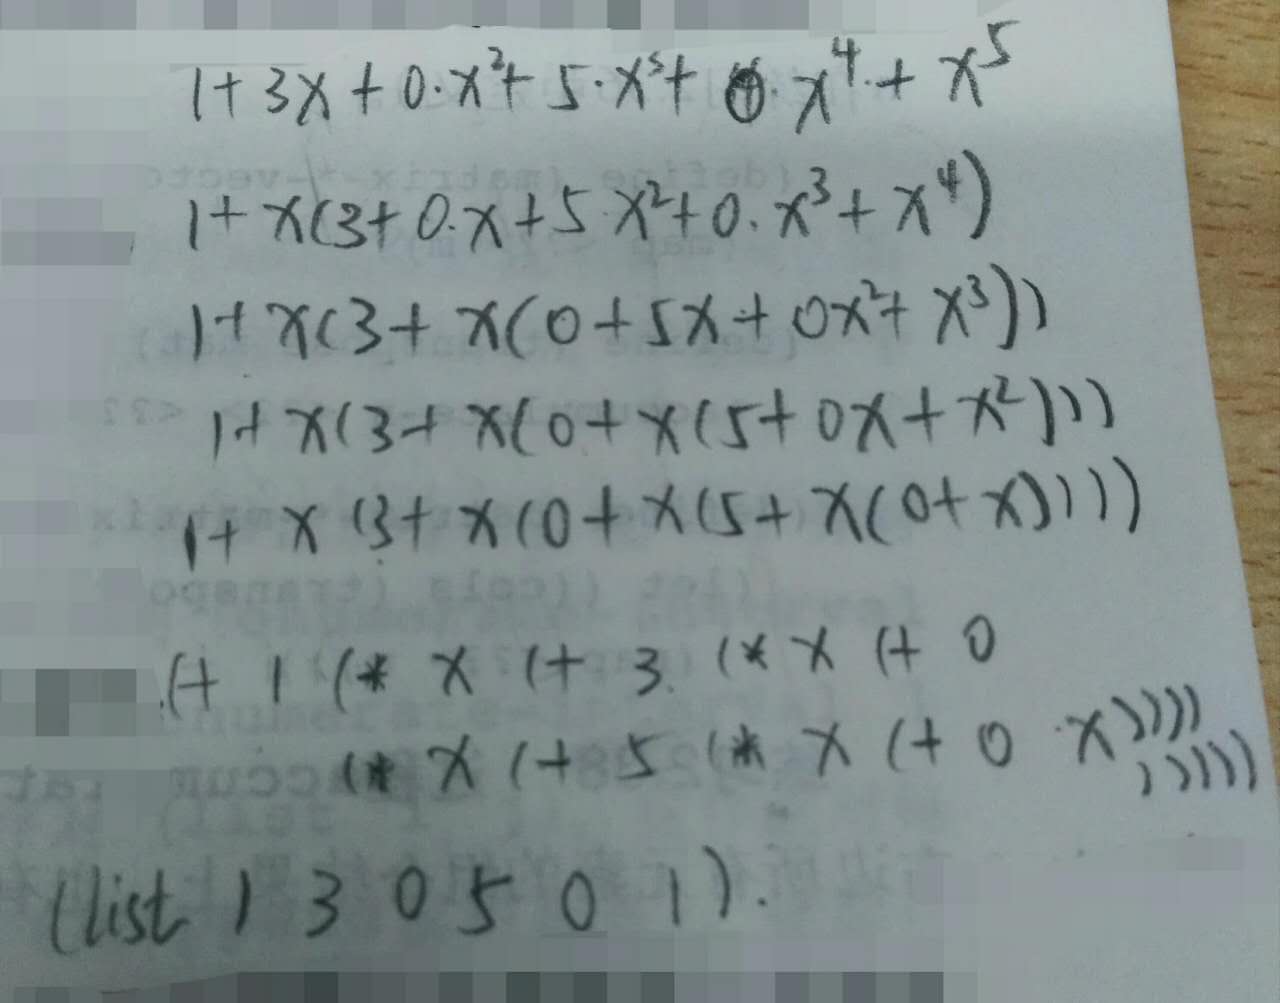 1+3x+0·x²+5·x³+0·x⁴+x⁵
1+x(3+0·x+5·x²+0·x³+x⁴)
1+x(3+x(0+5x+0x²+x³))
1+x(3+x(0+x(5+0x+x²)))
1+x(3+x(0+x(5+x(0+x))))
(+ 1 (* x (+ 3 (* x (+ 0
(* x (+ 5 (* x (+ 0 x))))
)))))
(list 1 3 0 5 0 1).